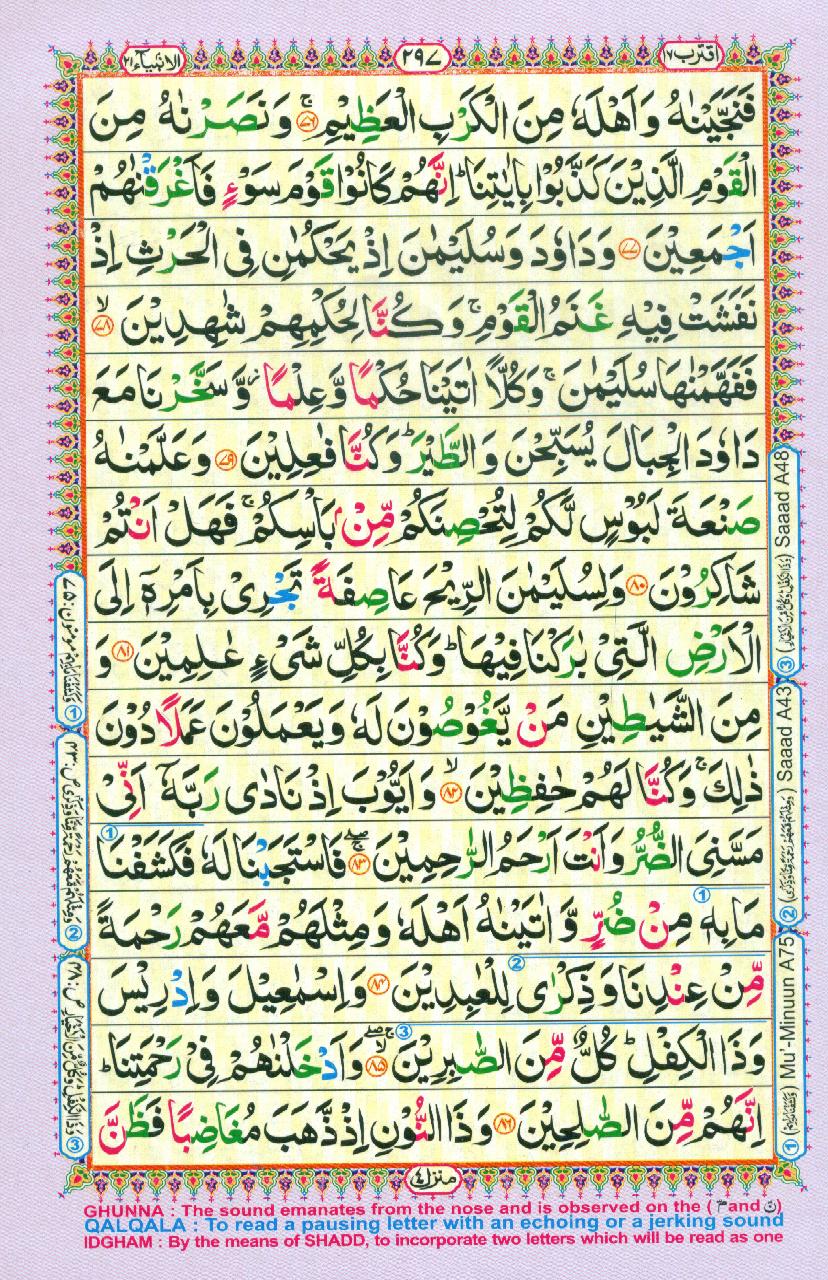 اقترب ١٧
٢٩٧
الانبيآء ٢١
فَنَجَّيْنٰهُ وَاَهْلَهٗ مِنَ الْكَرْبِ الْعَظِيْمِ ۚ ٧٦ وَنَصَرْنٰهُ مِنَ
الْقَوْمِ الَّذِيْنَ كَذَّبُوْا بِاٰيٰتِنَا ؕ اِنَّهُمْ كَانُوْا قَوْمَ سَوْءٍ فَاَغْرَقْنٰهُمْ
اَجْمَعِيْنَ ٧٧ وَدَاوٗدَ وَسُلَيْمٰنَ اِذْ يَحْكُمٰنِ فِى الْحَرْثِ اِذْ
نَفَشَتْ فِيْهِ غَنَمُ الْقَوْمِ ۚ وَكُنَّا لِحُكْمِهِمْ شٰهِدِيْنَ ۙ ٧٨
فَفَهَّمْنٰهَا سُلَيْمٰنَ ۚ وَكُلًّا اٰتَيْنَا حُكْمًا وَّعِلْمًا ؗ وَّسَخَّرْنَا مَعَ
دَاوٗدَ الْجِبَالَ يُسَبِّحْنَ وَالطَّيْرَ ؕ وَكُنَّا فٰعِلِيْنَ ٧٩ وَعَلَّمْنٰهُ
صَنْعَةَ لَبُوْسٍ لَّكُمْ لِتُحْصِنَكُمْ مِّنْۢ بَاْسِكُمْ ۚ فَهَلْ اَنْتُمْ
شَاكِرُوْنَ ٨٠ وَلِسُلَيْمٰنَ الرِّيْحَ عَاصِفَةً تَجْرِىْ بِاَمْرِهٖۤ اِلَى
الْاَرْضِ الَّتِىْ بٰرَكْنَا فِيْهَا ؕ وَكُنَّا بِكُلِّ شَىْءٍ عٰلِمِيْنَ ٨١ وَ
مِنَ الشَّيٰطِيْنِ مَنْ يَّغُوْصُوْنَ لَهٗ وَيَعْمَلُوْنَ عَمَلًا دُوْنَ
ذٰلِكَ ۚ وَكُنَّا لَهُمْ حٰفِظِيْنَ ۙ ٨٢ وَاَيُّوْبَ اِذْ نَادٰى رَبَّهٗۤ اَنِّىْ
مَسَّنِىَ الضُّرُّ وَاَنْتَ اَرْحَمُ الرّٰحِمِيْنَ ۚۖ ٨٣ فَاسْتَجَبْنَا لَهٗ فَكَشَفْنَا
مَا بِهٖ مِنْ ضُرٍّ وَّاٰتَيْنٰهُ اَهْلَهٗ وَمِثْلَهُمْ مَّعَهُمْ رَحْمَةً
مِّنْ عِنْدِنَا وَذِكْرٰى لِلْعٰبِدِيْنَ ٨٤ وَاِسْمٰعِيْلَ وَاِدْرِيْسَ
وَذَا الْكِفْلِ ؕ كُلٌّ مِّنَ الصّٰبِرِيْنَ ۚۖ ٨٥ وَاَدْخَلْنٰهُمْ فِىْ رَحْمَتِنَا ؕ
اِنَّهُمْ مِّنَ الصّٰلِحِيْنَ ٨٦ وَذَا النُّوْنِ اِذْ ذَّهَبَ مُغَاضِبًا فَظَنَّ
منزل ٤
③ Saaad A48
② Saaad A43
① Mu'-Minuun A75
GHUNNA : The sound emanates from the nose and is observed on the ( م and ن )
QALQALA : To read a pausing letter with an echoing or a jerking sound
IDGHAM : By the means of SHADD, to incorporate two letters which will be read as one